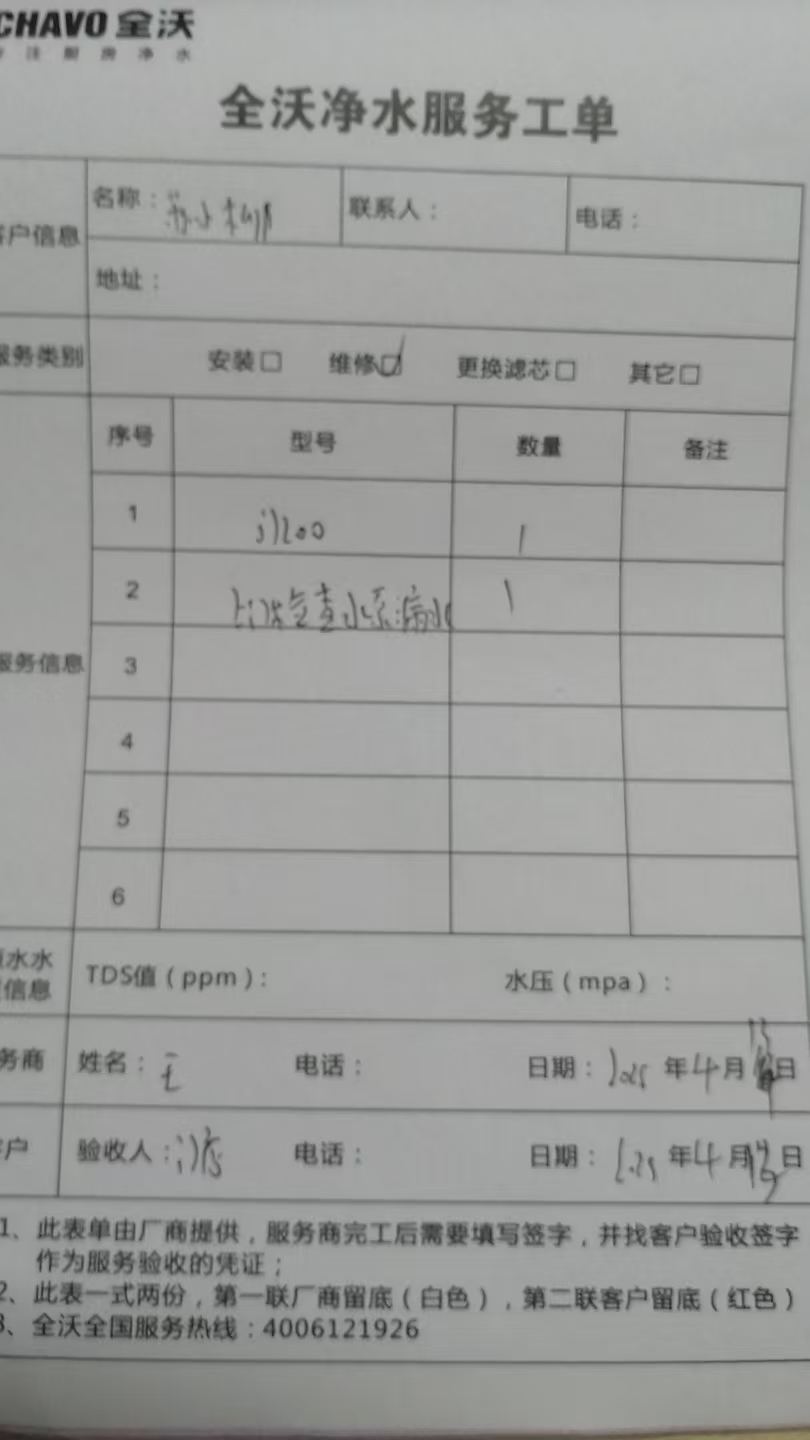 CHAVO 全沃
注厨房净水
全沃净水服务工单
户信息
名称:
联系人:
电话:
地址:
服务类别
安装□ 维修☑ 更换滤芯□ 其它□
序号 型号 数量 备注
1 1
2 1
服务信息
3
4
5
6
水水
信息
TDS值(ppm): 水压(mpa):
务商
姓名:王 电话: 日期:2025年4月日
户
验收人: 电话: 日期:2025年4月日
1、此表单由厂商提供,服务商完工后需要填写签字,并找客户验收签字
作为服务验收的凭证;
2、此表一式两份,第一联厂商留底(白色),第二联客户留底(红色)
3、全沃全国服务热线:4006121926